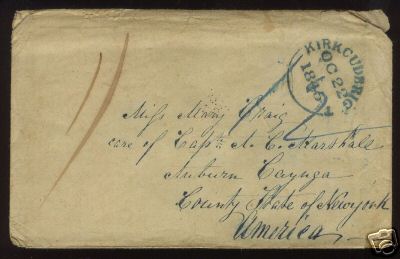 KIRKCUDBRIG
OC 22
1845
Miss Mary Craig
care of Capt. A. C. Marshale
Auburn Cayuga
County State of Newyork
America